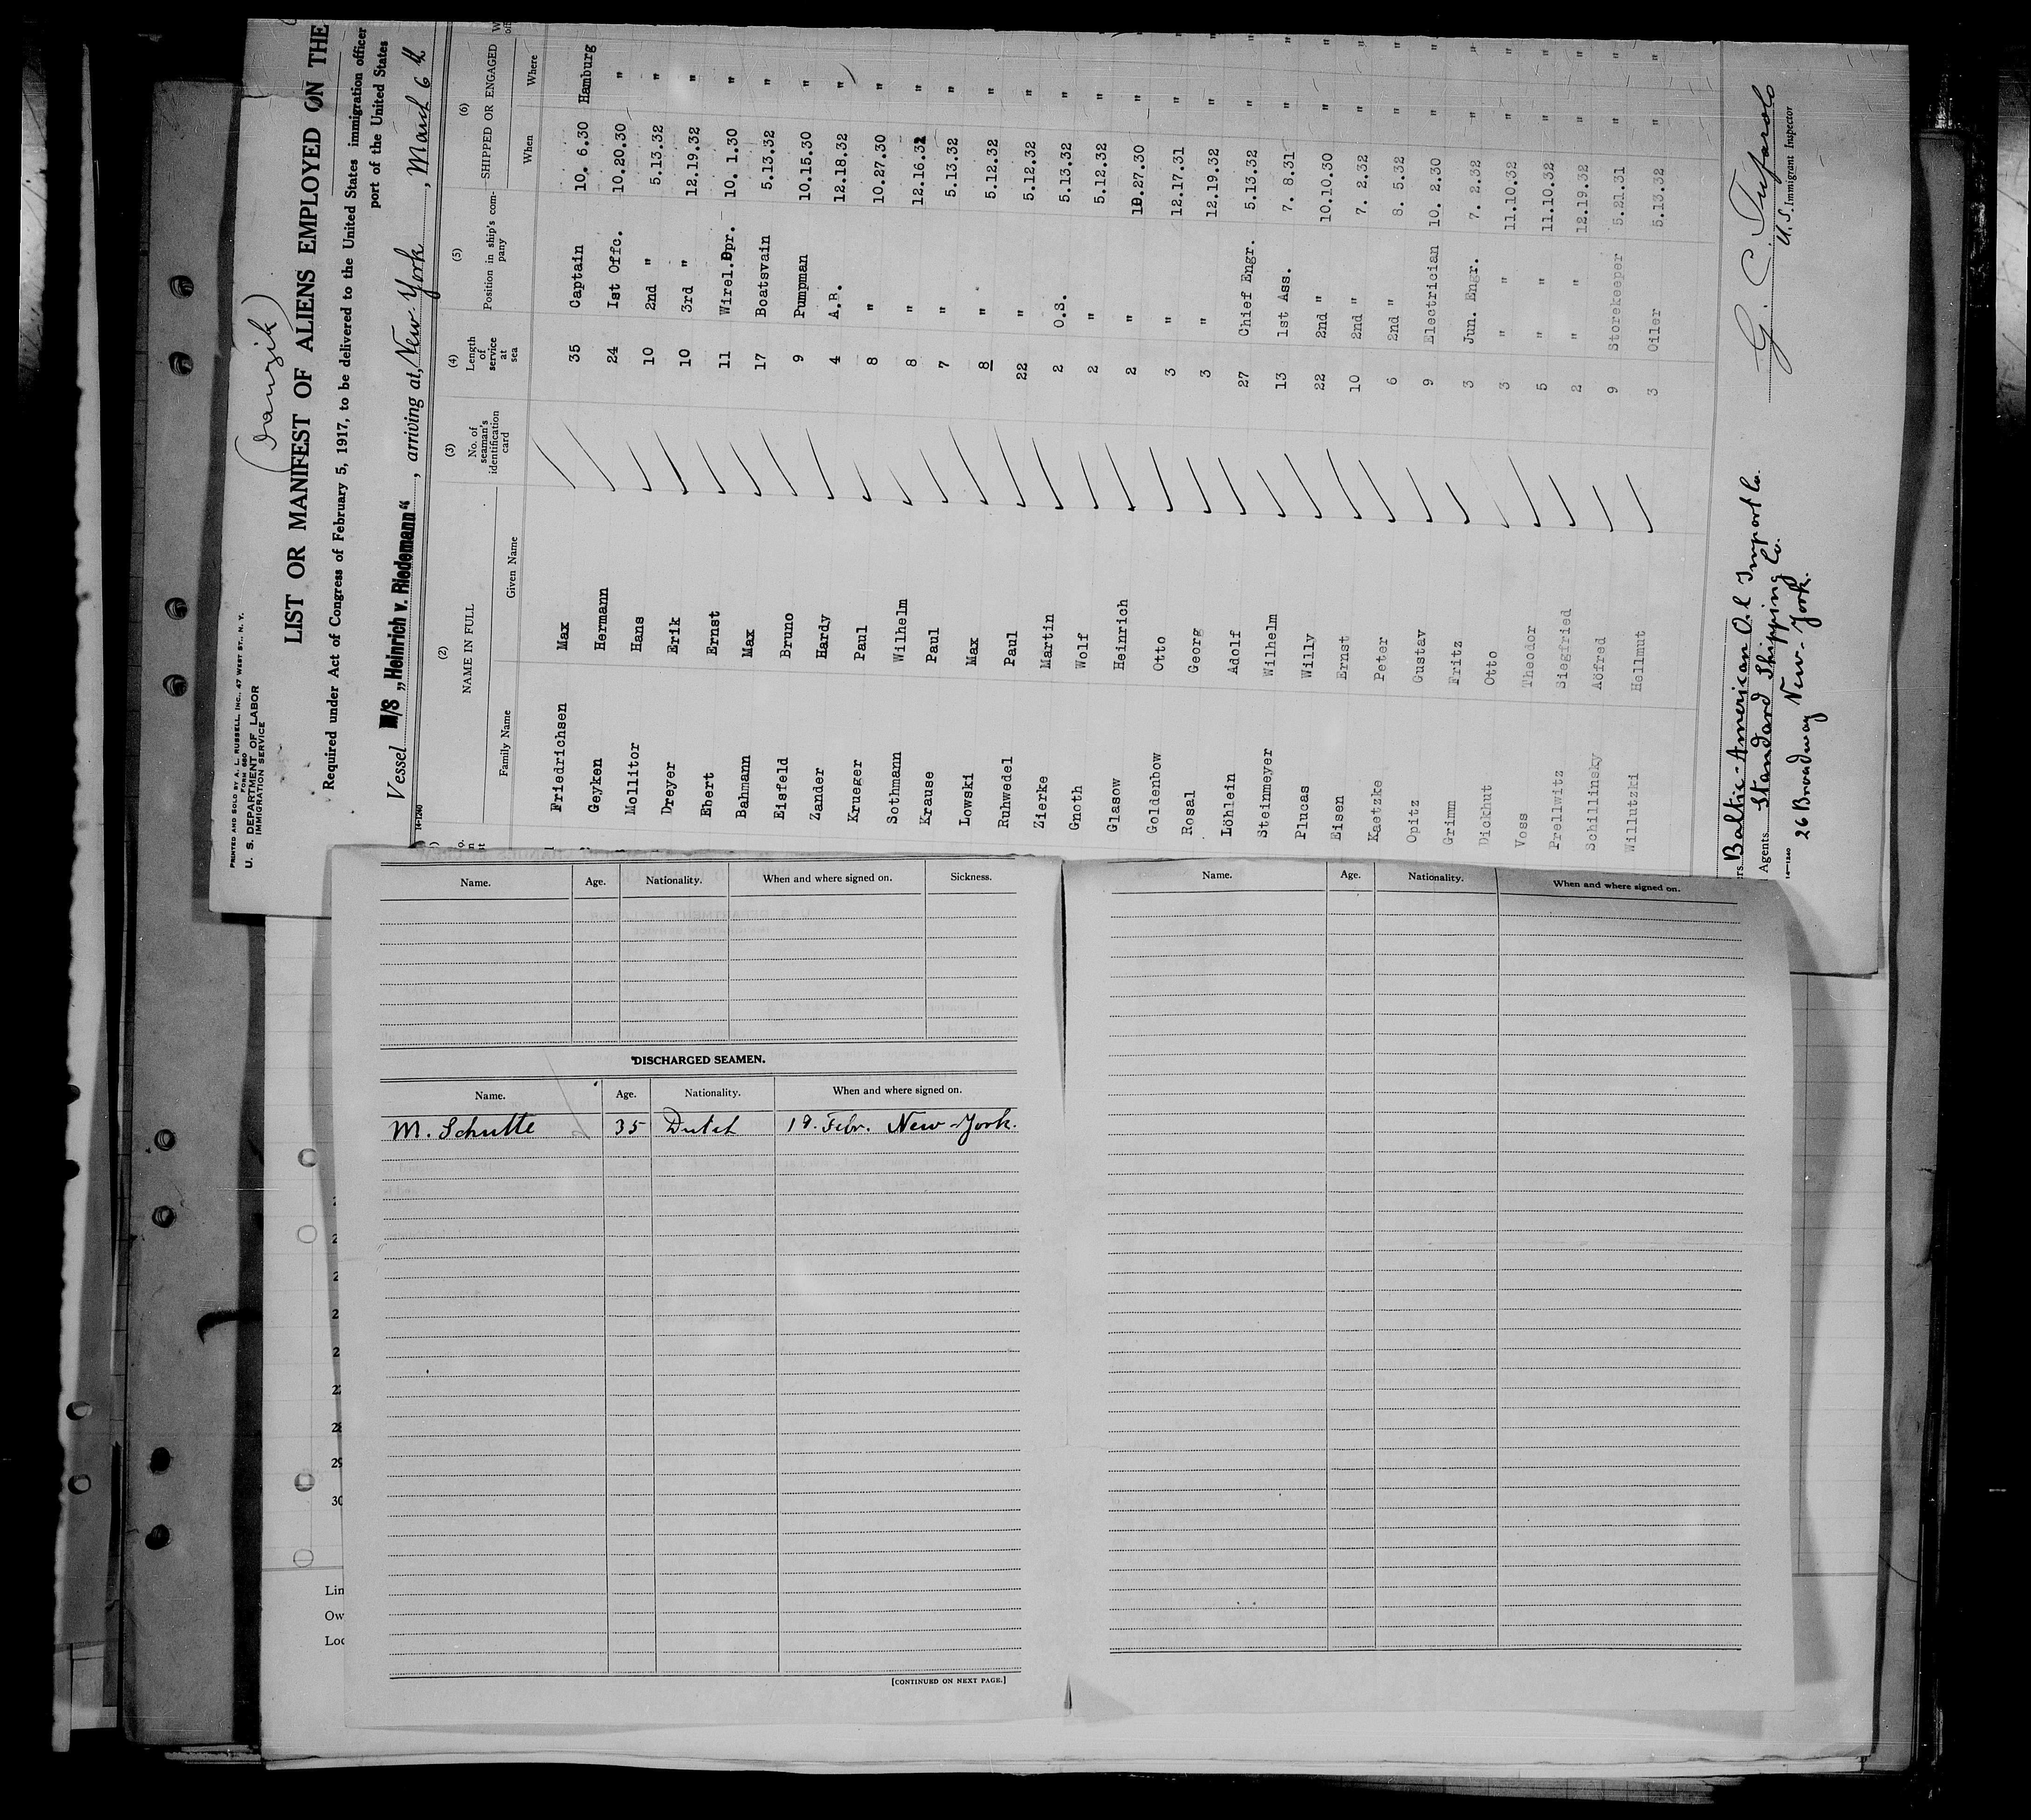 PRINTED AND SOLD BY A. L. RUSSELL, INC., 47 WEST ST., N. Y.
FORM 680
U. S. DEPARTMENT OF LABOR
IMMIGRATION SERVICE
(Danzik)
LIST OR MANIFEST OF ALIENS EMPLOYED ON THE
Required under Act of Congress of February 5, 1917, to be delivered to the United States immigration officer
port of the United States
Vessel M/S „Heinrich v. Riedemann“, arriving at, New-York, March 6th
14-1240
(2) (3) (4) (5) (6)
NAME IN FULL No. of seaman's identification card Length of service at sea Position in ship's company SHIPPED OR ENGAGED
Family Name Given Name When Where
Friedrichsen Max 35 Captain 10. 6.30 Hamburg
Geyken Hermann 24 1st Offc. 10.20.30 "
Mollitor Hans 10 2nd " 5.13.32 "
Dreyer Erik 10 3rd " 12.19.32 "
Ebert Ernst 11 Wirel.Opr. 10. 1.30 "
Bahmann Max 17 Boatsvain 5.13.32 "
Eisfeld Bruno 9 Pumpman 10.15.30 "
Zander Hardy 4 A.B. 12.18.32 "
Krueger Paul 8 " 10.27.30 "
Sothmann Wilhelm 8 " 12.16.32 "
Krause Paul 7 " 5.13.32 "
Lowski Max 8 " 5.12.32 "
Ruhwedel Paul 22 " 5.12.32 "
Zierke Martin 2 O.S. 5.13.32 "
Gnoth Wolf 2 " 5.12.32 "
Glasow Heinrich 2 " 10.27.30 "
Goldenbow Otto 3 " 12.17.31 "
Rosal Georg 3 " 12.19.32 "
Löhlein Adolf 27 Chief Engr. 5.13.32 "
Steinmeyer Wilhelm 13 1st Ass. 7. 8.31 "
Plucas Willy 22 2nd " 10.10.30 "
Eisen Ernst 10 2nd " 7. 2.32 "
Kaetzke Peter 6 2nd " 8. 5.32 "
Opitz Gustav 9 Electrician 10. 2.30 "
Grimm Fritz 3 Jun. Engr. 7. 2.32 "
Dickhut Otto 3 " 11.10.32 "
Voss Theodor 5 " 11.10.32 "
Prellwitz Siegfried 2 " 12.19.32 "
Schillinsky Aöfred 9 Storekeeper 5.21.31 "
Willutzki Hellmut 3 Oiler 5.13.32 "
Baltic-American Oil Import Co.
Agents Standard Shipping Co.
26 Broadway New-York.
14-1240
G. C. Tufarolo
U. S. Immigrant Inspector
Name. Age. Nationality. When and where signed on. Sickness.
DISCHARGED SEAMEN.
Name. Age. Nationality. When and where signed on.
M. Schutte 35 Dutch 19. Febr. New-York.
[CONTINUED ON NEXT PAGE.]
Name. Age. Nationality. When and where signed on.
28
29
30
Lin
Ow
Loc